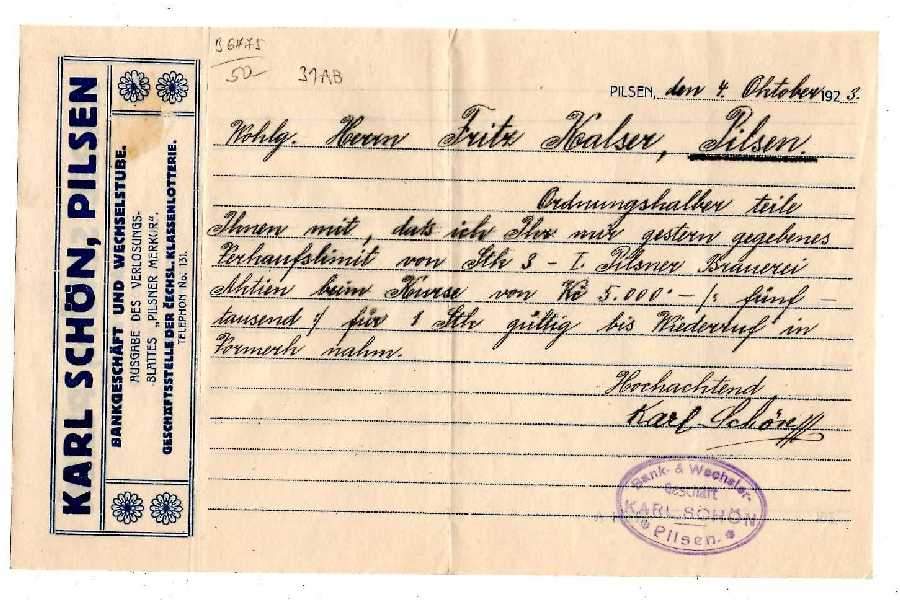 B6475
50
31AB
KARL SCHÖN, PILSEN
BANKGESCHÄFT UND WECHSELSTUBE.
AUSGABE DES VERLOSUNGS-
BLATTES „PILSNER MERKUR“.
GESCHÄFTSSTELLE DER ČECHSL. KLASSENLOTTERIE.
TELEPHON No. 131.
PILSEN, den 4. Oktober 1923.
Wohlg. Herrn Fritz Kalser, Pilsen.
Ordnungshalber teile
Ihnen mit, dats ich Ihr mir gestern gegebenes
Verkaufslimit von Stk 3 - I. Pilsner Brauerei
Aktien beim Kurse von Kč 5.000·-/: fünf -
tausend :/ für 1 Stk gültig bis Wiederruf in
Vormerk nahm.
Hochachtend
Karl Schön
Bank- & Wechsler-
Geschäft
KARL SCHÖN
Pilsen.